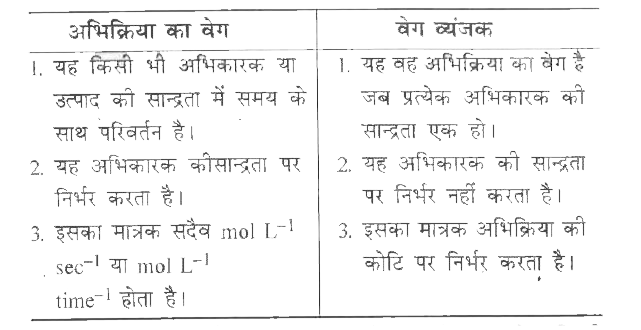 अभिक्रिया का वेग
वेग व्यंजक
1. यह किसी भी अभिकारक या
उत्पाद की सान्द्रता में समय के
साथ परिवर्तन है।
2. यह अभिकारक कीसान्द्रता पर
निर्भर करता है।
3. इसका मात्रक सदैव mol L⁻¹
sec⁻¹ या mol L⁻¹
time⁻¹ होता है।
1. यह वह अभिक्रिया का वेग है
जब प्रत्येक अभिकारक की
सान्द्रता एक हो।
2. यह अभिकारक की सान्द्रता
पर निर्भर नहीं करता है।
3. इसका मात्रक अभिक्रिया की
कोटि पर निर्भर करता है।